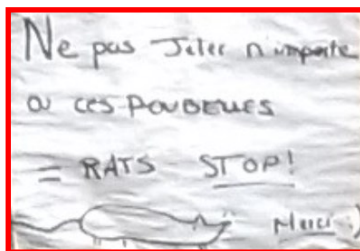 Ne pas Jeter n'importe
ou ces POUBELLES
= RATS STOP!
Merci :)